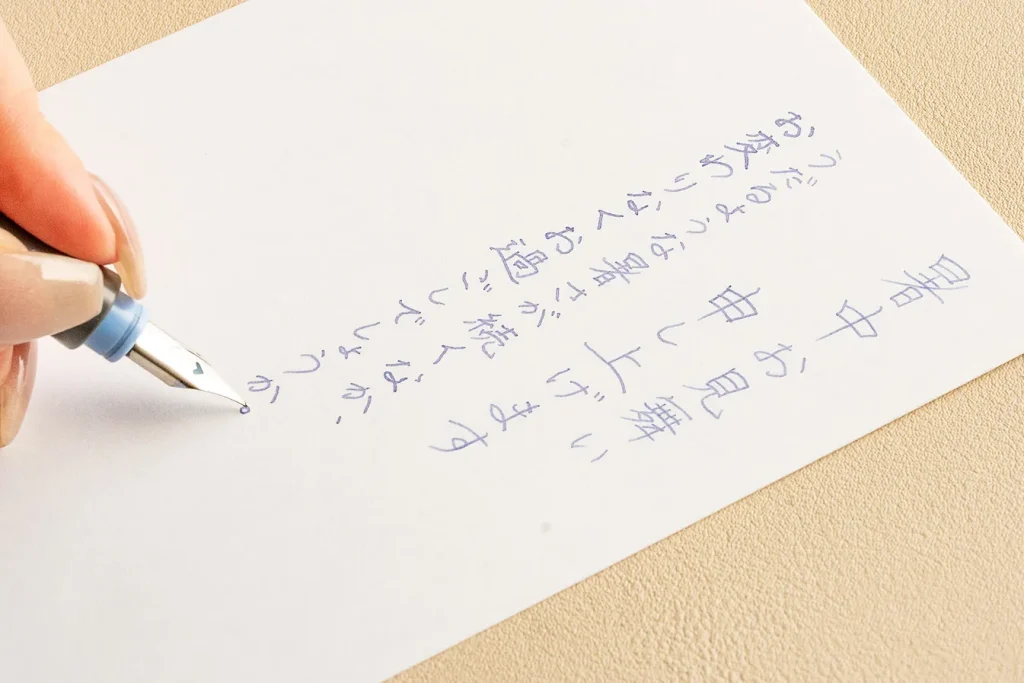 暑中お見舞い
申し上げます
うだるような暑さが続くなか、
お変わりなくお過ごしでしょうか。